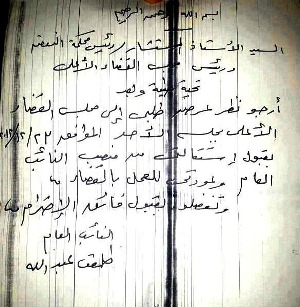 بسم الله الرحمن الرحيم
السيد الأستاذ المستشار / رئيس محكمة النقض
ورئيس مجلس القضاء الأعلى
تحية طيبة وبعد
أرجو نظر عرض طلبى إلى مجلس القضاء
الأعلى بجلسة الأحد الموافق ٢٣ / ١٢ / ٢٠١٢
لقبول إستقالتى من منصب النائب
العام وعودتى للعمل بالقضاء
وتفضلوا بقبول فائق الإحترام
النائب العام
طلعت عبد الله